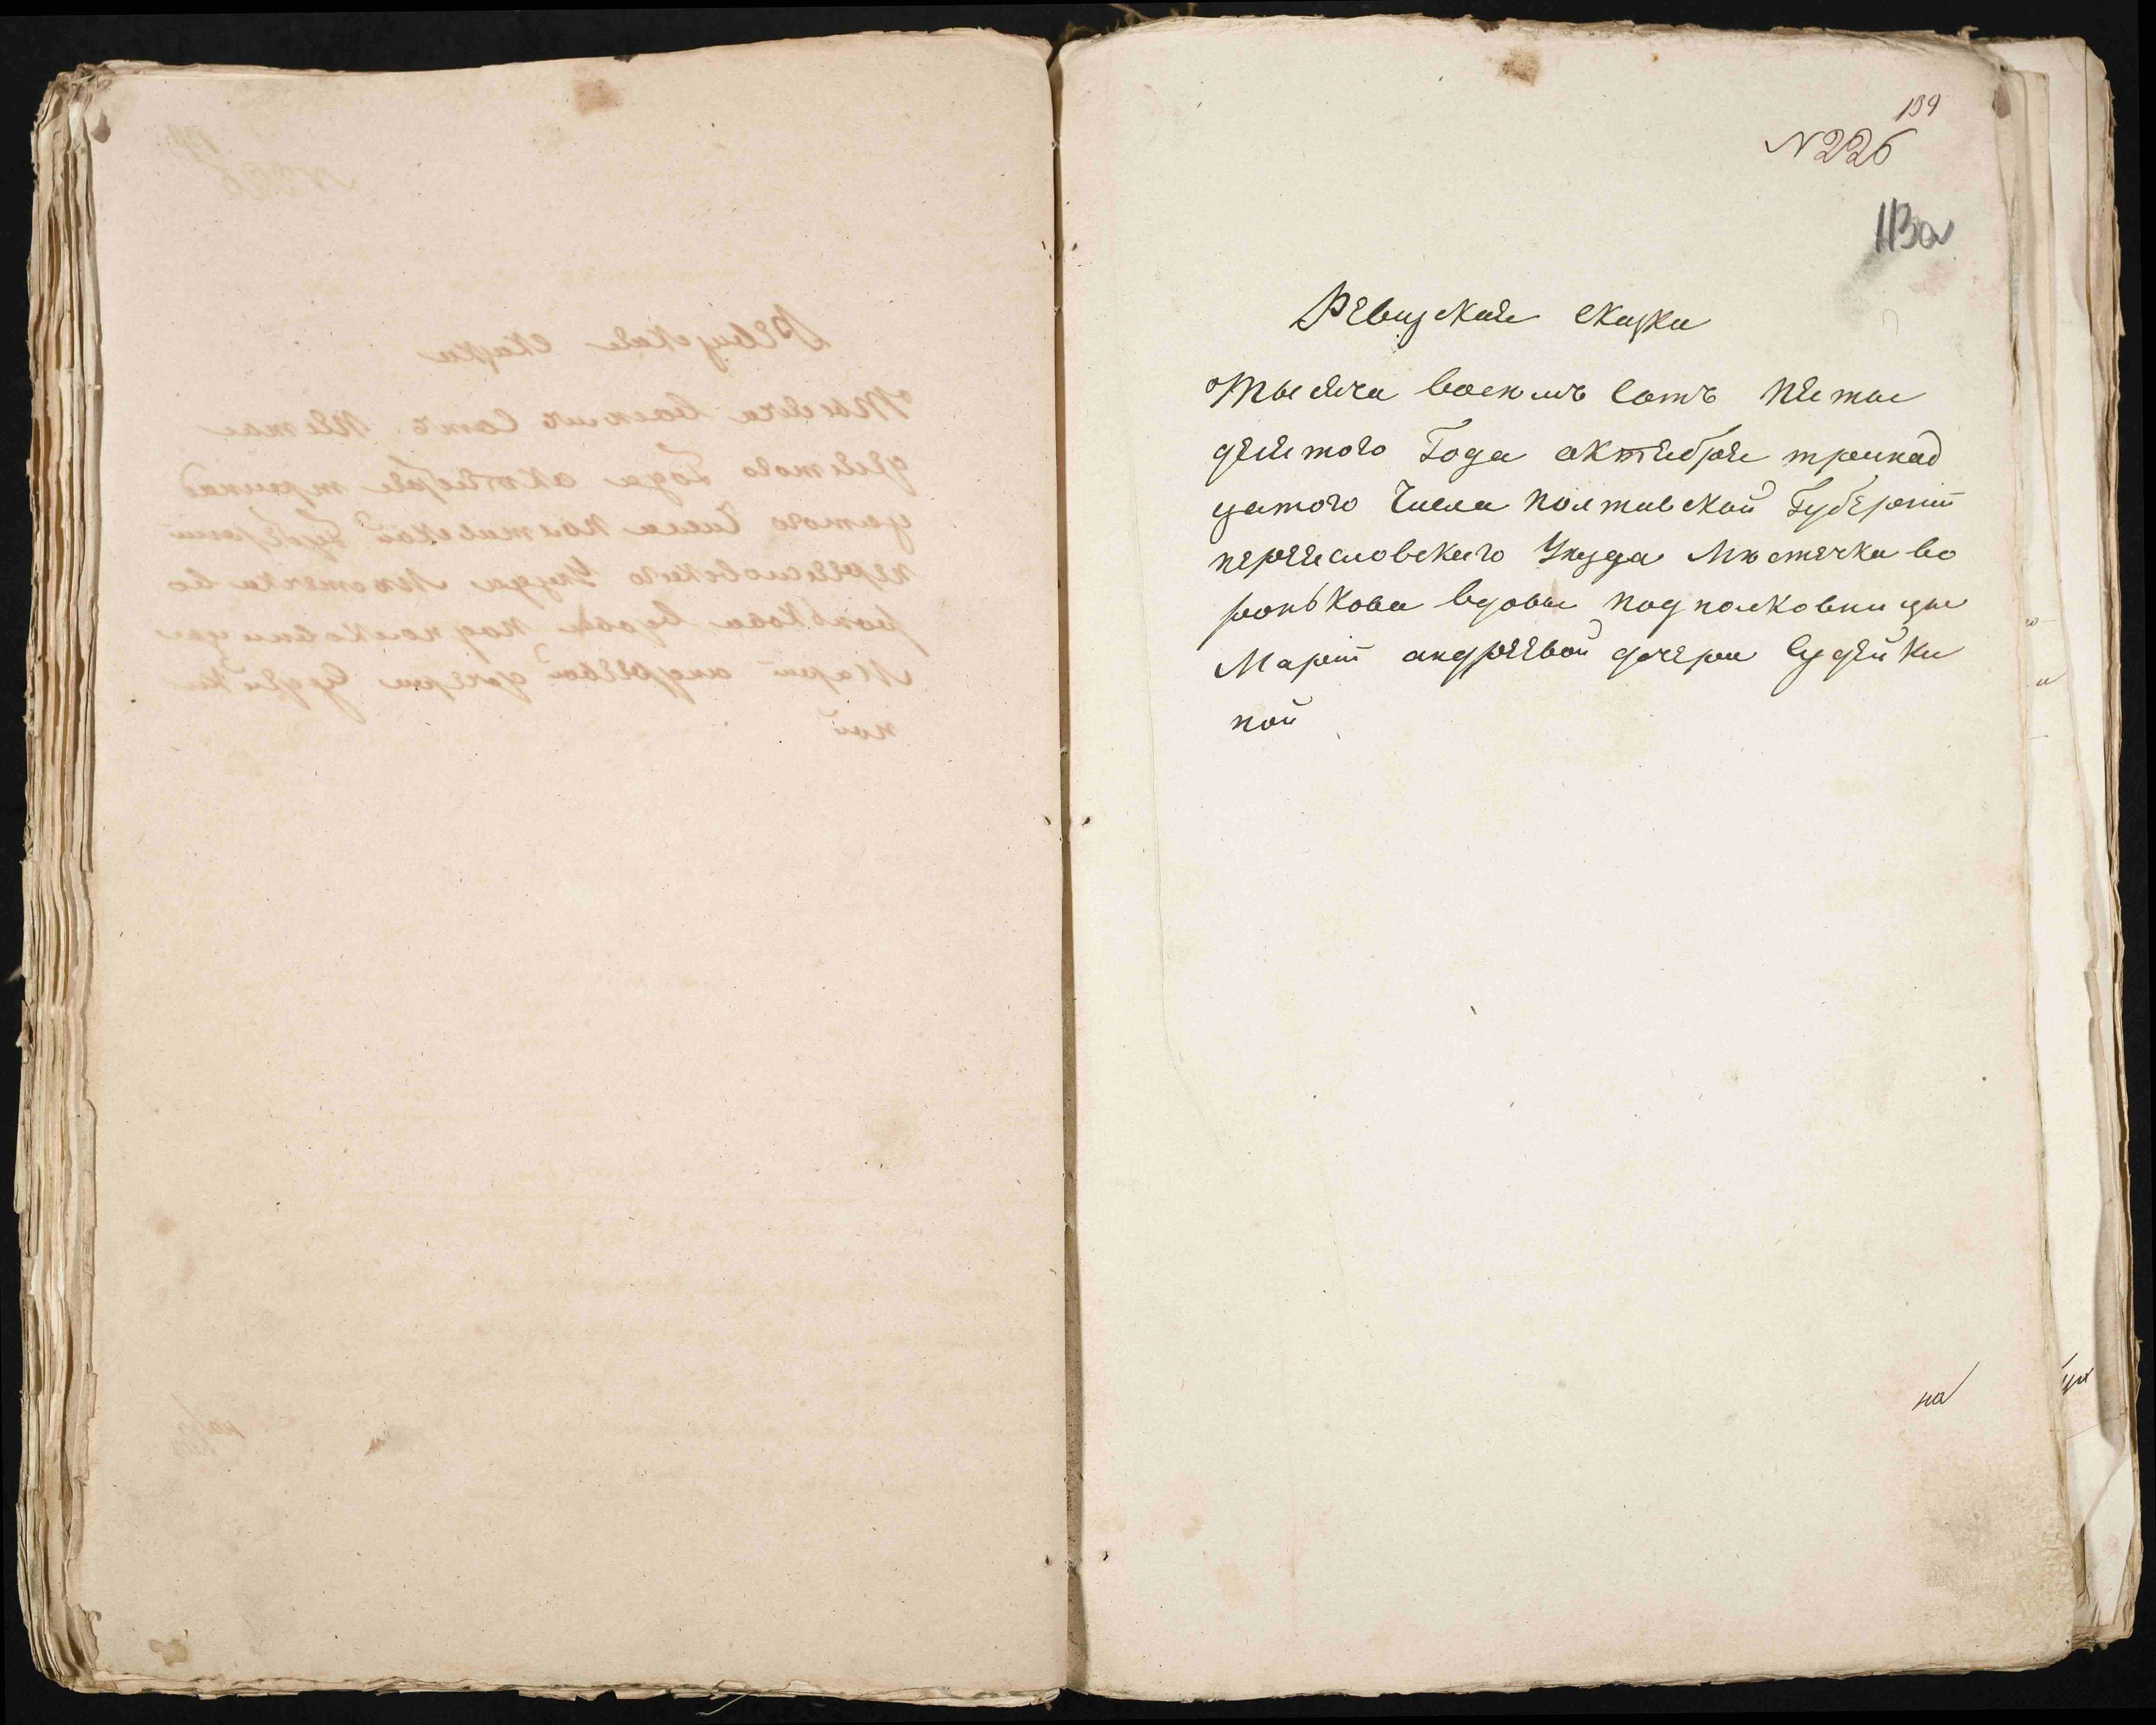 139
№226
113а
Ревизская сказка
Тысяча восемъ сотъ пяты
десятого Года октября тринад
цатого Числа полтавской Губернiи
переясловского Уезда Местечка во
ронькова вдовы подполковницы
Марiи андреевой дочери Судейки
ной
на